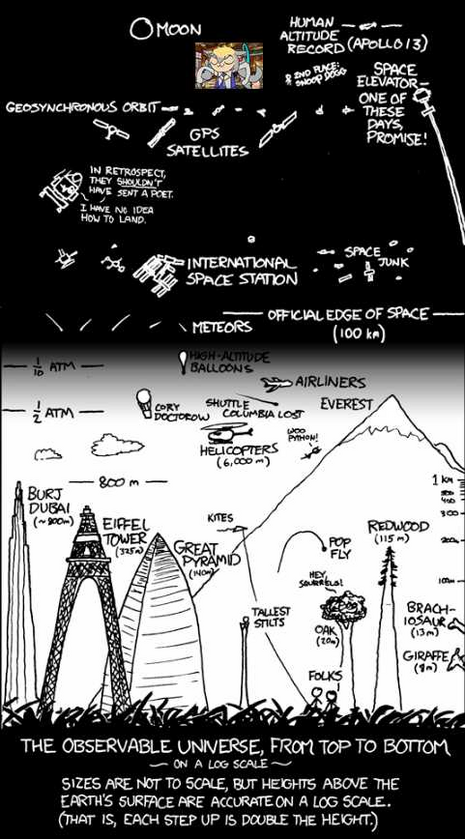 MOON
HUMAN
ALTITUDE
RECORD (APOLLO 13)
& 2ND PLACE:
SNOOP DOGG
SPACE
ELEVATOR—
ONE OF
THESE
DAYS,
PROMISE!
GEOSYNCHRONOUS ORBIT
GPS
SATELLITES
IN RETROSPECT,
THEY SHOULDN'T
HAVE SENT A POET.
I HAVE NO IDEA
HOW TO LAND.
INTERNATIONAL
SPACE STATION
SPACE
JUNK
OFFICIAL EDGE OF SPACE
(100 km)
METEORS
HIGH-ALTITUDE
BALLOONS
1/10 ATM
AIRLINERS
1/2 ATM
CORY
DOCTOROW
SHUTTLE
COLUMBIA LOST
EVEREST
HELICOPTERS
(6,000 m)
WOO
PYTHON!
800 m
1 km
BURJ
DUBAI
(~800m)
EIFFEL
TOWER
(325m)
KITES
GREAT
PYRAMID
(140m)
POP
FLY
REDWOOD
(115 m)
300
200m
100m
HEY,
SQUIRRELS!
OAK
(20m)
TALLEST
STILTS
BRACH-
IOSAUR
(13m)
GIRAFFE
(8m)
FOLKS
THE OBSERVABLE UNIVERSE, FROM TOP TO BOTTOM
~ ON A LOG SCALE ~
SIZES ARE NOT TO SCALE, BUT HEIGHTS ABOVE THE
EARTH'S SURFACE ARE ACCURATE ON A LOG SCALE.
(THAT IS, EACH STEP UP IS DOUBLE THE HEIGHT.)